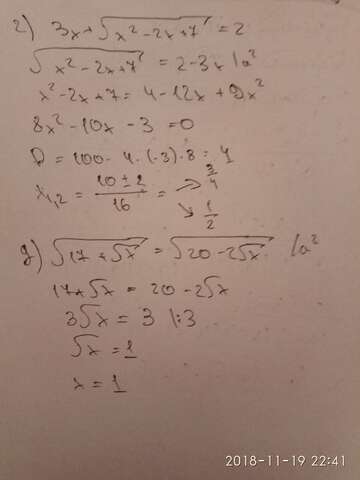 2) 3x + √(x² - 2x + 7) = 2
√(x² - 2x + 7) = 2 - 3x |a²
x² - 2x + 7 = 4 - 12x + 9x²
8x² - 10x - 3 = 0
D = 100 - 4 · (-3) · 8 = 4
x₁,₂ = (10 ± 2)/16 = ↗ 3/4
↘ 1/2
g) √(17 + √x) = √(20 - 2√x) |a²
17 + √x = 20 - 2√x
3√x = 3 |:3
√x = 1
x = 1
2018-11-19 22:41